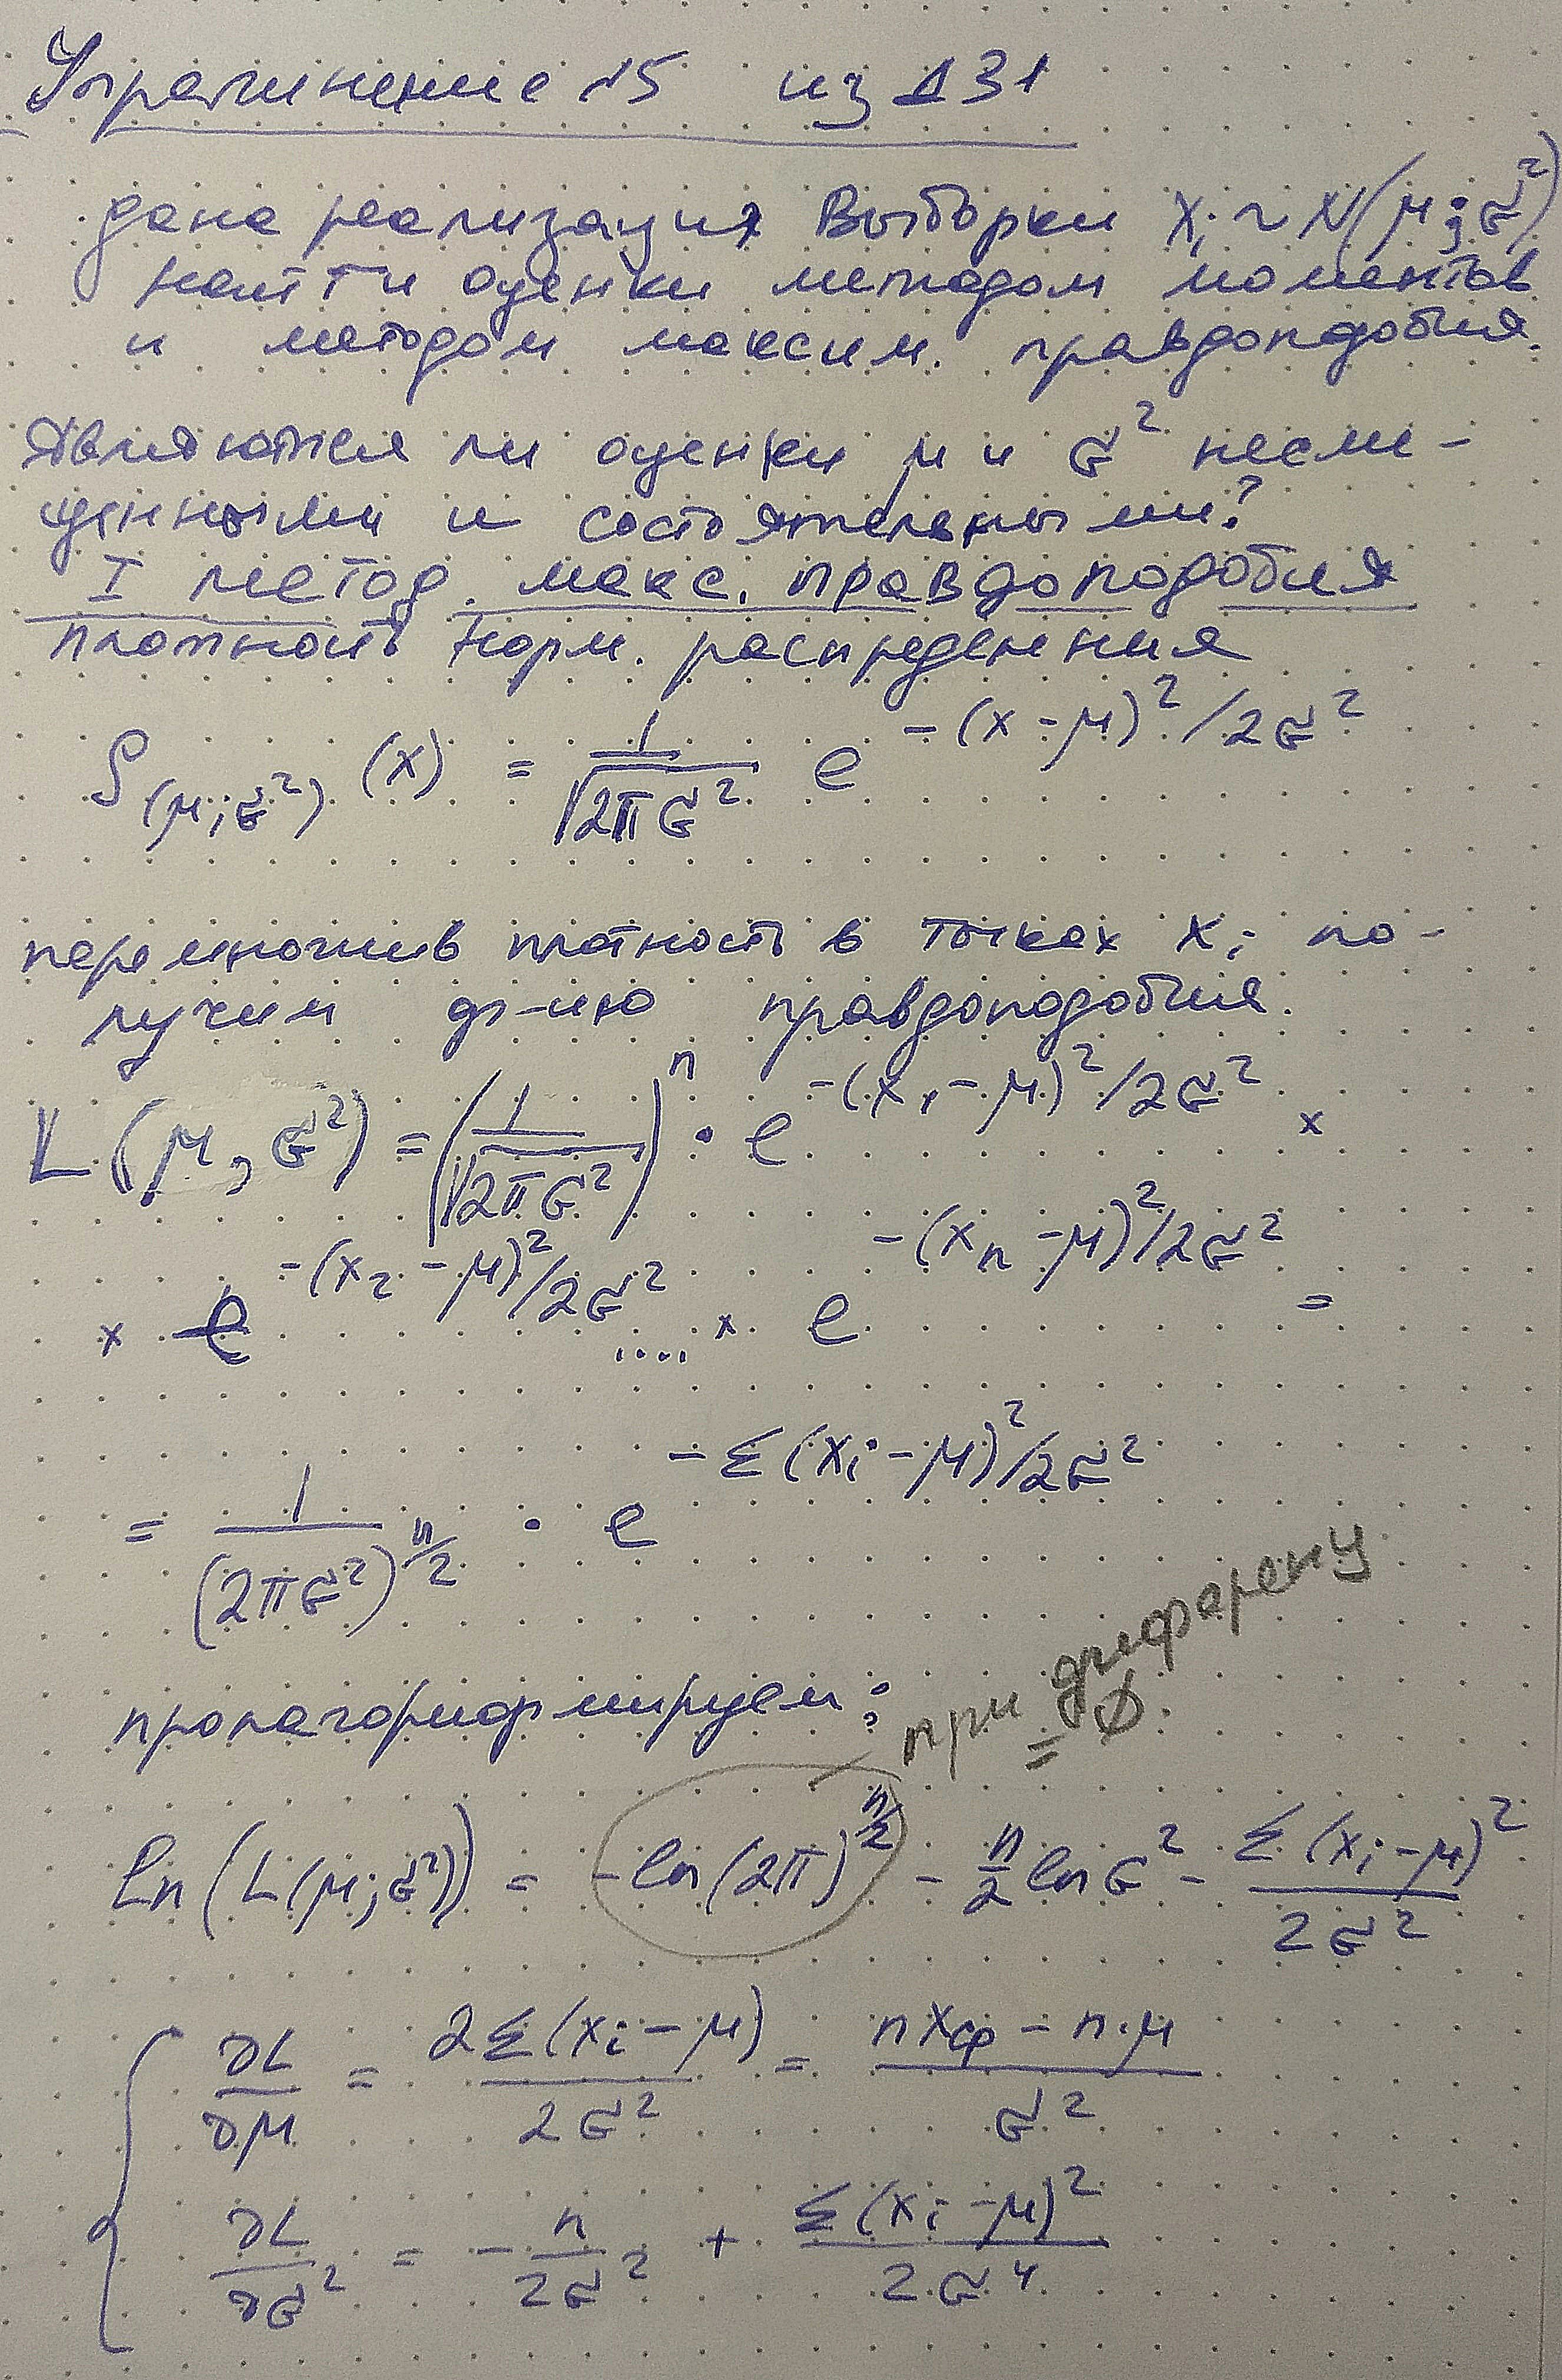 Упражнение №5 из Д31
дана реализация выборки Xi ~ N(μ; σ²)
найти оценки методом моментов
и методом максим. правдоподобия.
Являются ли оценки μ и σ² несме-
щенными и состоятельными?
I метод макс. правдоподобия
плотность норм. распределения
ρ(μ;σ²) (x) = 1/√(2πσ²) e^(-(x-μ)²/2σ²)
перемножив плотность в точках xi по-
лучим ф-ию правдоподобия.
L(μ, σ²) = (1/√(2πσ²))^n · e^(-(x₁-μ)²/2σ²) ×
× e^(-(x₂-μ)²/2σ²) .... × e^(-(xn-μ)²/2σ²) =
= 1/(2πσ²)^(n/2) · e^(-Σ(xi-μ)²/2σ²)
прологарифмируем:
при дифференц
= 0
ln(L(μ;σ²)) = -ln(2π)^(n/2) - n/2 lnσ² - Σ(xi-μ)²/2σ²
{ ∂L/∂μ = 2Σ(xi-μ)/2σ² = (nxср - n·μ)/σ²
∂L/∂σ² = -n/2σ² + Σ(xi-μ)²/2σ⁴